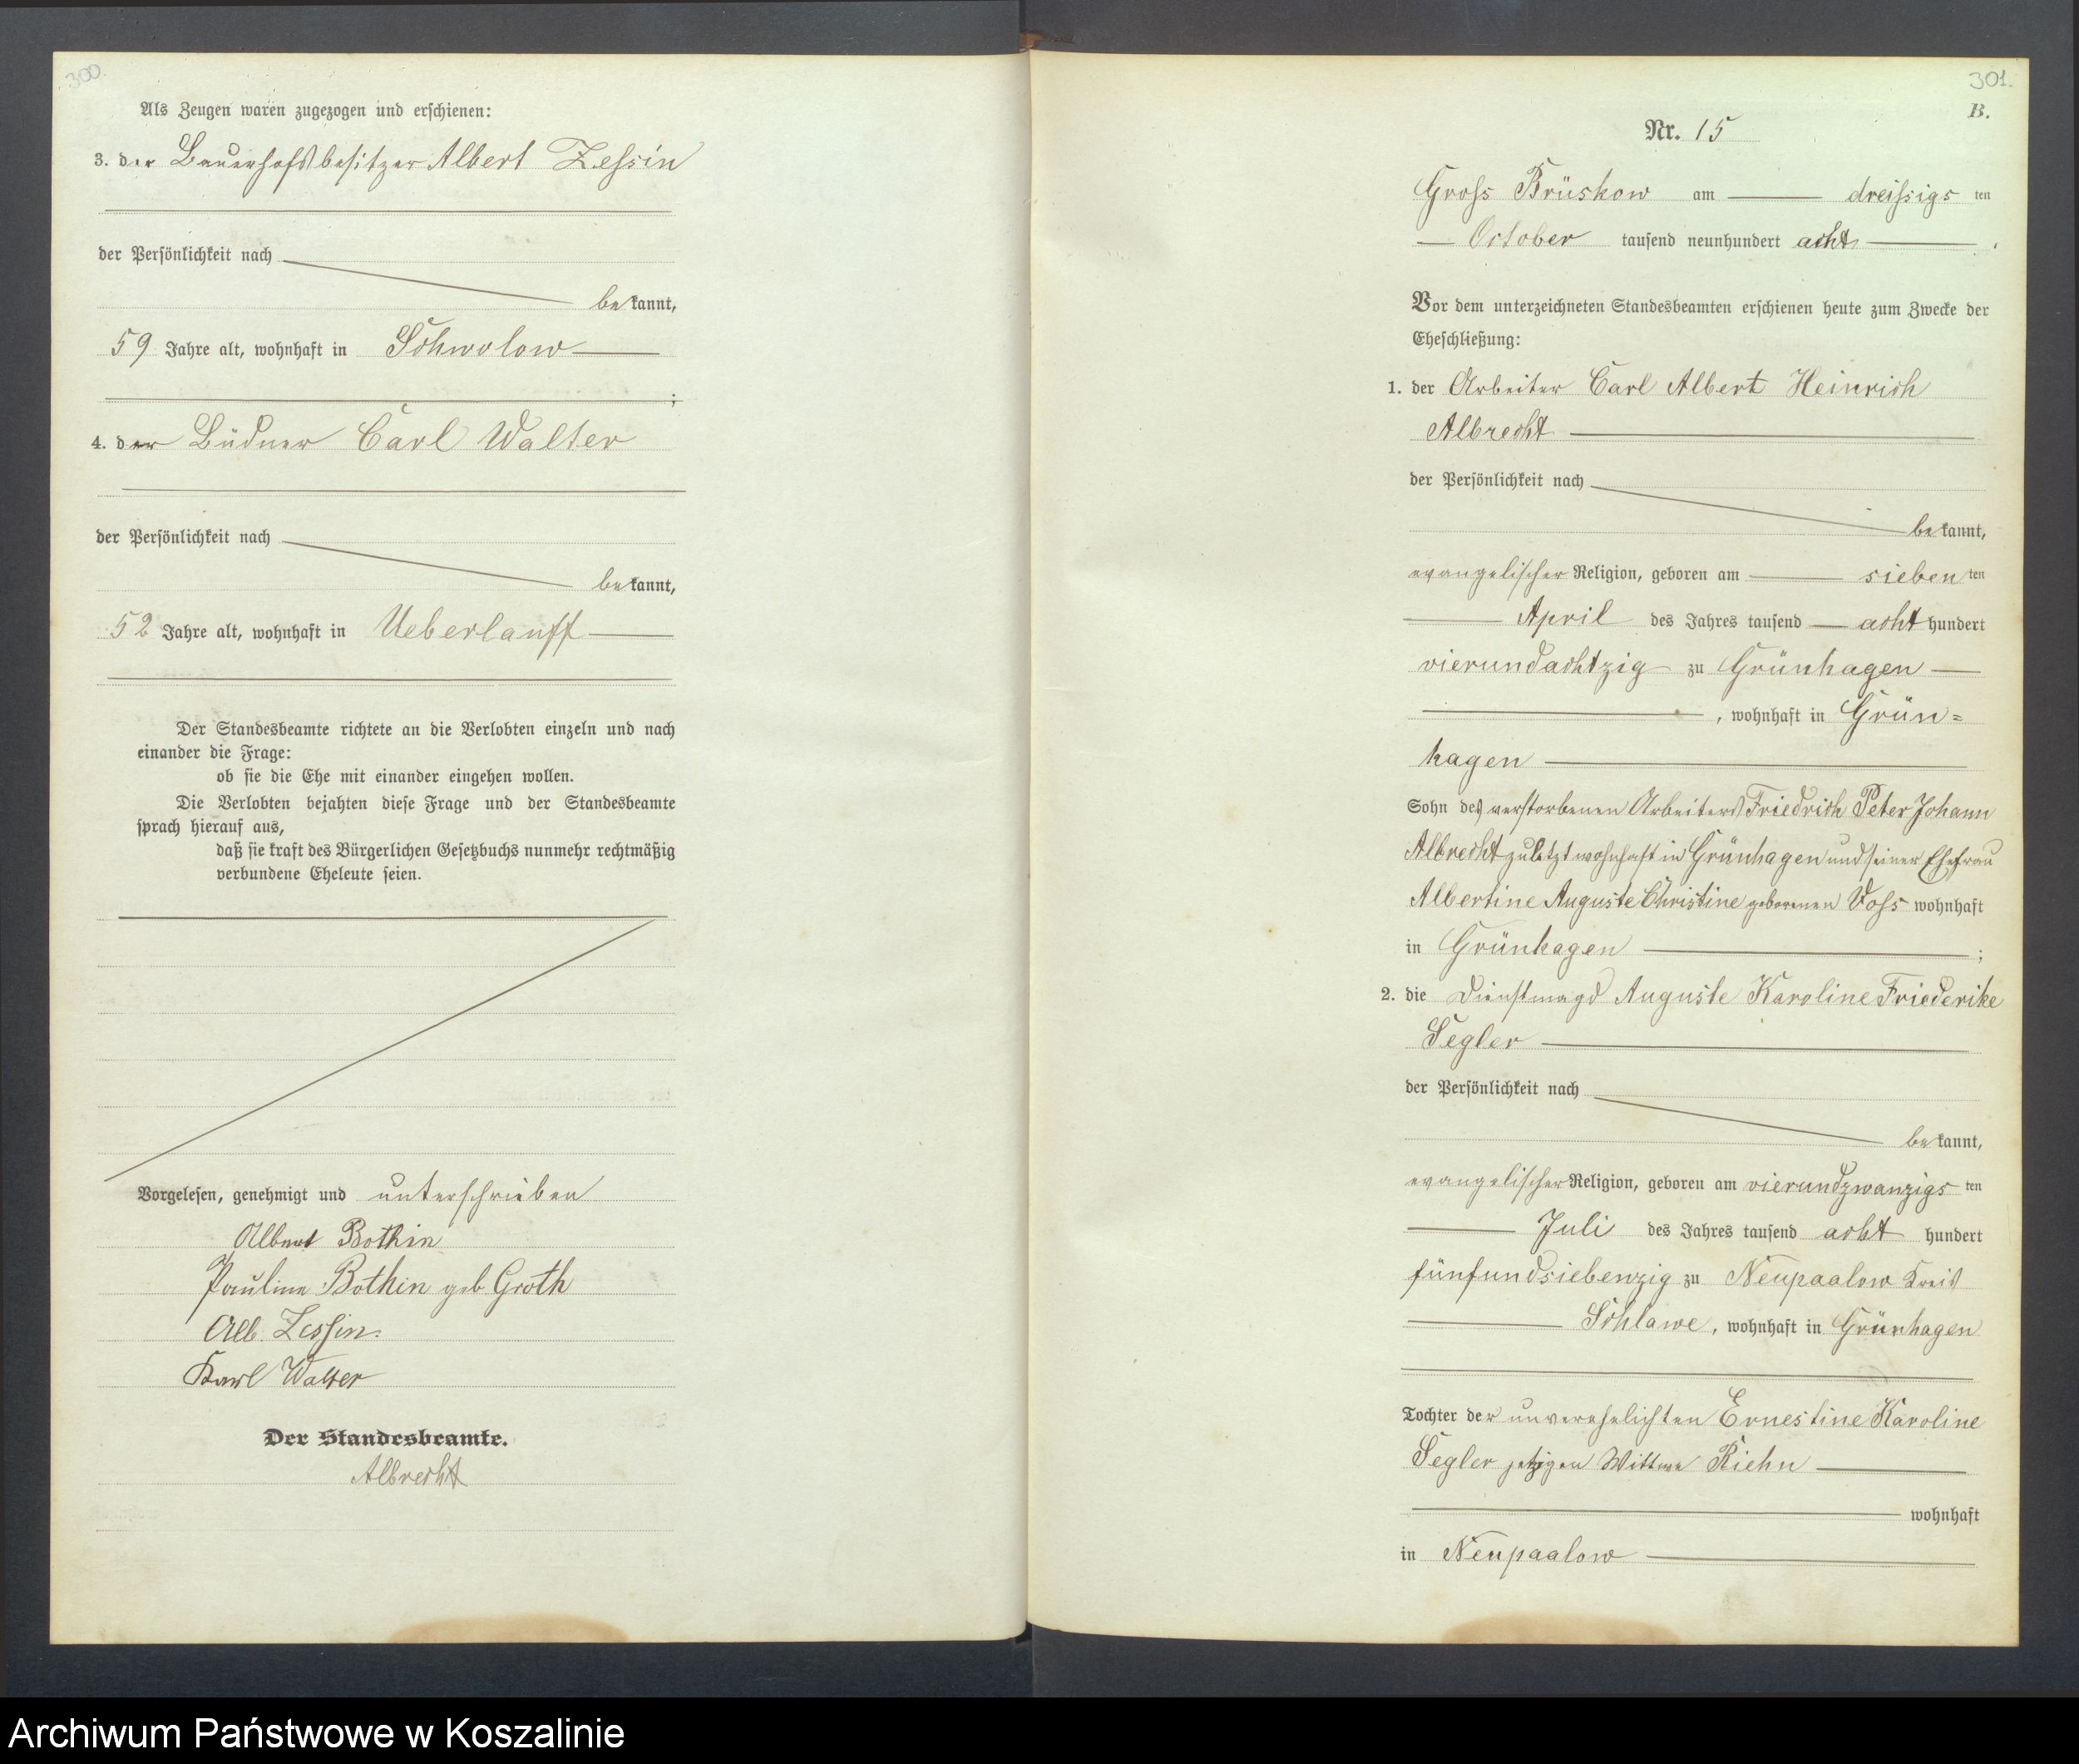 300.
Als Zeugen waren zugezogen und erschienen:
3. der Bauerhofsbesitzer Albert Zessin
der Persönlichkeit nach
bekannt,
59 Jahre alt, wohnhaft in Schwolow
;
4. der Büdner Carl Walter
der Persönlichkeit nach
bekannt,
52 Jahre alt, wohnhaft in Ueberlauff
Der Standesbeamte richtete an die Verlobten einzeln und nach
einander die Frage:
ob sie die Ehe mit einander eingehen wollen.
Die Verlobten bejahten diese Frage und der Standesbeamte
sprach hierauf aus,
daß sie kraft des Bürgerlichen Gesetzbuchs nunmehr rechtmäßig
verbundene Eheleute seien.
Vorgelesen, genehmigt und unterschrieben
Albert Bothin
Pauline Bothin geb Groth
Alb. Zessin.
Karl Walter
Der Standesbeamte.
Albrecht
301.
B.
Nr. 15
Gross Brüskow am dreissigsten
October tausend neunhundert acht.
Vor dem unterzeichneten Standesbeamten erschienen heute zum Zwecke der
Eheschließung:
1. der Arbeiter Carl Albert Heinrich
Albrecht
der Persönlichkeit nach
bekannt,
evangelischer Religion, geboren am siebenten
April des Jahres tausend achthundert
vierundachtzig zu Grünhagen
, wohnhaft in Grün=
hagen
Sohn des verstorbenen Arbeiters Friedrich Peter Johann
Albrecht zuletzt wohnhaft in Grünhagen und seiner Ehefrau
Albertine Auguste Christine geborenen Voss wohnhaft
in Grünhagen ;
2. die Dienstmagd Auguste Karoline Friederike
Segler
der Persönlichkeit nach
bekannt,
evangelischer Religion, geboren am vierundzwanzigsten
Juli des Jahres tausend acht hundert
fünfundsiebenzig zu Neupaalow Kreis
Schlawe, wohnhaft in Grünhagen
Tochter der unverehelichten Ernestine Karoline
Segler jetzigen Wittwe Riehn
wohnhaft
in Neupaalow
Archiwum Państwowe w Koszalinie